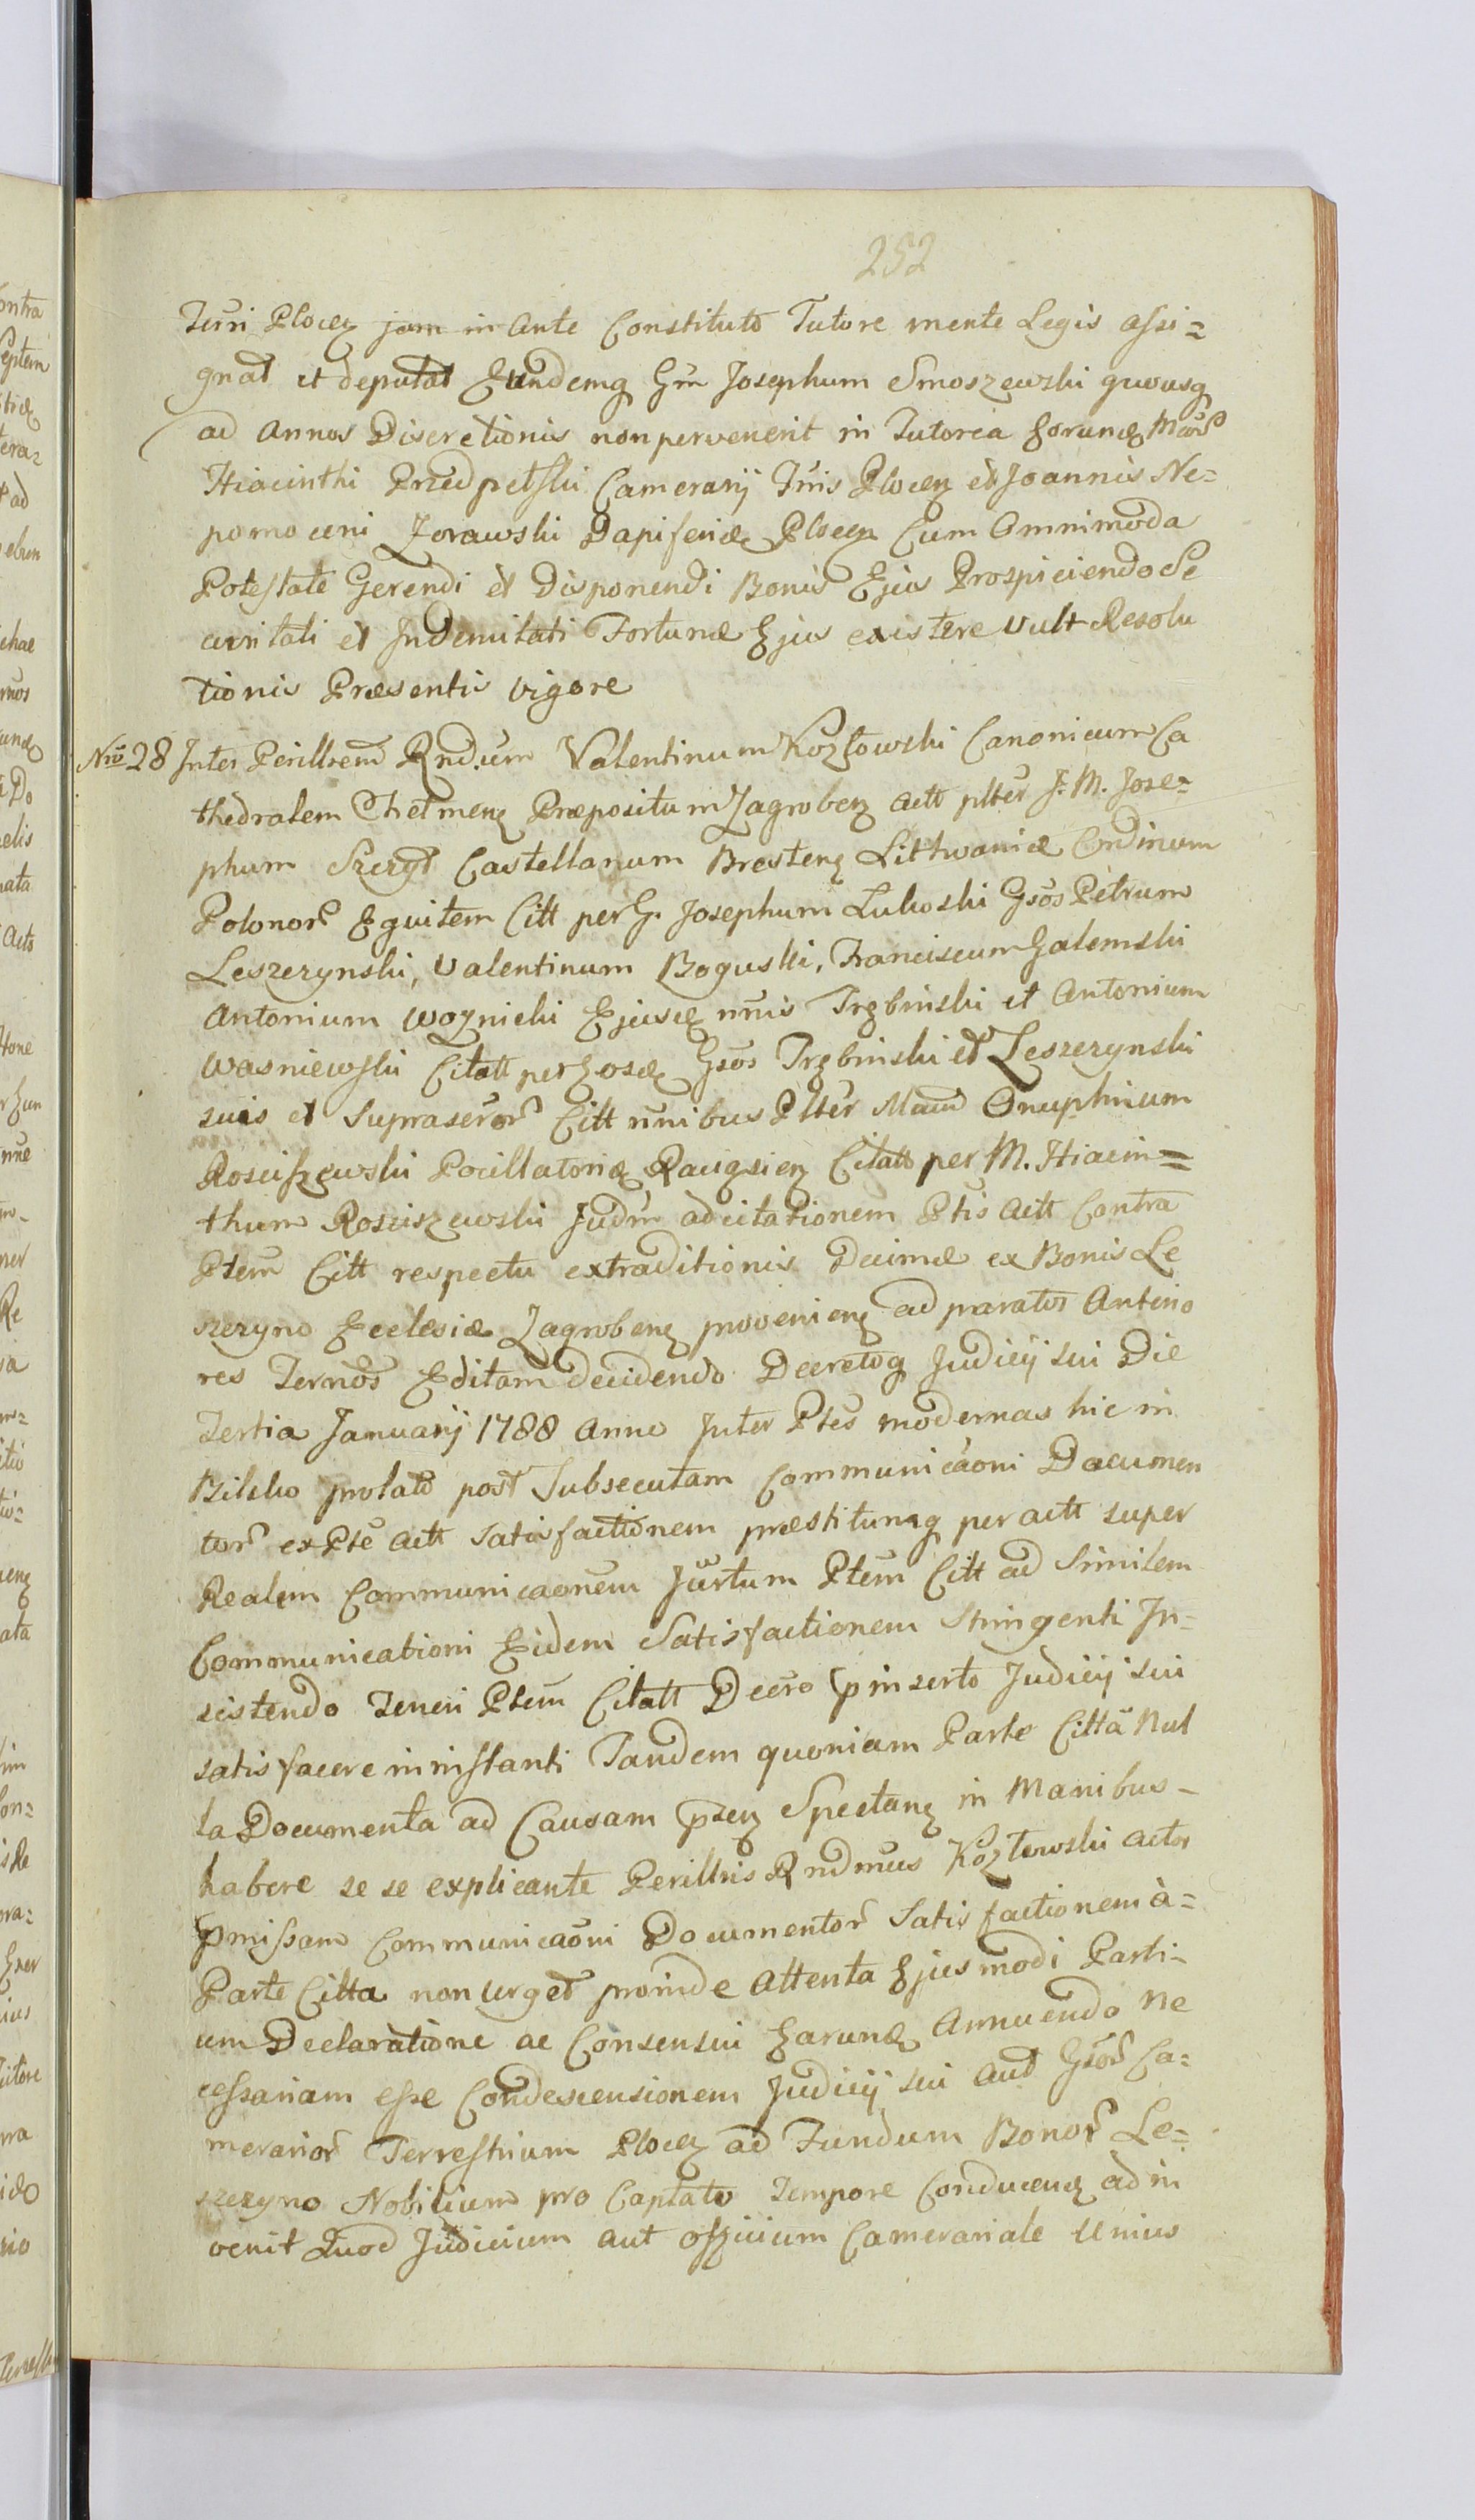 252
Terri Plocen jam in Ante Constituto Tutore mente Legis assi=
gnat et deputat Eundemq Gm Josephum Smoszewski quousq
ad Annos Discretionis non pervenerit in Tutorea Eorund Mcor
Hiacinthi Przedpełski Camerarij Tris Plocen et Joannis Ne=
pomoceni Zorawski Dapiferid Plocen Cum Omnimoda
Potestate Gerendi et Disponendi Bonis Ejus Prospiciendo Se
curitati et Indemnitati Fortunæ Ejus existere vult Resolu
tionis Præsentis vigore
Nro 28 Inter Perillrem Rndum Valentinum Kozłowski Canonicum Ca
thedralem Chełmen Præpositum Zagroben Actt plter J. M. Jose=
phum Szczyt Castellanum Bresten Lithwaniæ Ordinum
Polonor Equitem Citt per G. Josephum Lukoski Gsos Petrum
Leszczynski, Valentinum Boguski, Franciscum Galemski
Antonium Woynicki Ejusd nnis Trębinski et Antonium
Wasniewski Citatt per Eosd Gsos Trębinski et Leszczynski
suis et Suprascror Citt nnibus Plter Mcum Onuphrium
Rosciszewski Pocillatorid Raciąsien Citatt per M. Hiacin=
thum Rosciszewski Judm ad citationem Ptis Actt Contra
Ptem Citt respectu extraditionis Decimæ ex Bonis Le
szczyno Ecclesiæ Zagroben provenien ad paratos Anterio
res Ternos Editam decidendo Decretoq Judicij sui Die
Tertia Januarij 1788 Anno Inter Ptes modernas hic in
Bilsko prolato post Subsecutam Communicaoni Documen
tor ex Pte Actt Satisfactionem præstitumq per actt super
Realem Communicaonem Jurtum Ptem Citt ad Similem
Communicationi Eidem Satisfactionem Stringenti In=
sistendo Teneri Ptem Citatt Decro pinserto Judicij sui
satisfacere in instanti Tandem quoniam Parte Citta Nul
la Documenta ad Causam psen Spectan in Manibus
habere se se explicante Perillris Rndmus Kozłowski actor
pmissam Communicaoni Documentor Satisfactionem à=
Parte Citta non urget proinde Attenta Ejusmodi Parti=
um Declaratione ac Consensui Earund Annuendo Ne
cessariam esse Condescensionem Judicij sui aut Gsor Ca=
merarior Terrestrium Plocen ad Fundum Bonor Le=
szczyno Nobilium pro Captato Tempore Conducen ad in
venit Quod Judicium aut officium Camerariale Unius